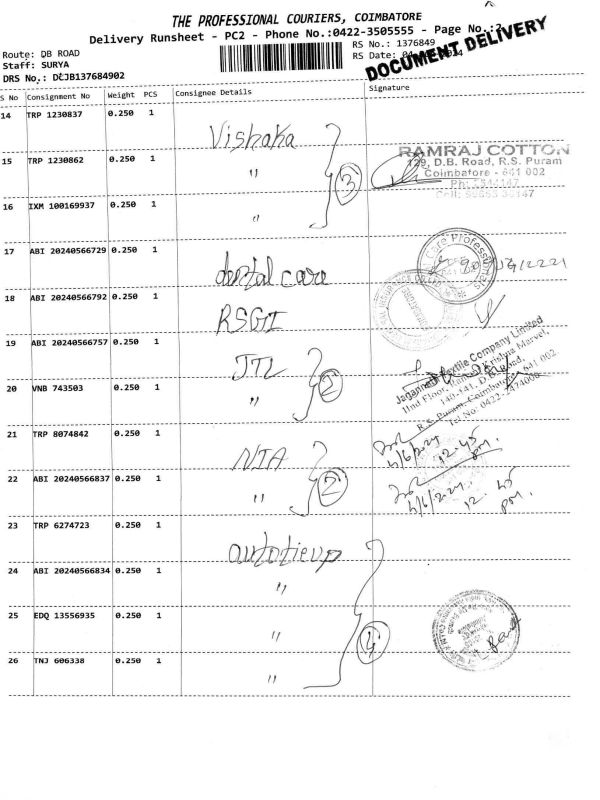 THE PROFESSIONAL COURIERS, COIMBATORE
Delivery Runsheet - PC2 - Phone No.:0422-3505555 - Page No.:2
DOCUMENT DELIVERY
Route: DB ROAD
Staff: SURYA
DRS No.: DLJB137684902
RS No.: 1376849
RS Date:
S No Consignment No Weight PCS Consignee Details Signature
14 TRP 1230837 0.250 1 Vishaka
15 TRP 1230862 0.250 1 "
16 IXM 100169937 0.250 1 "
3
RAMRAJ COTTON
129, D.B. Road, R.S. Puram
Coimbatore - 641 002
17 ABI 20240566729 0.250 1 dental care
Care Professionals
18 ABI 20240566792 0.250 1 RSGI
19 ABI 20240566757 0.250 1 JTL
20 VNB 743503 0.250 1 "
2
Jagannath Textile Company Limited
IInd Floor, Krishna Marvel,
140-141, D.B. Road,
R.S. Puram, Coimbatore, 641 002
Tel No: 0422-2474008
21 TRP 8074842 0.250 1 NIA
4/6/2024 12.45 pm.
22 ABI 20240566837 0.250 1 "
2
4/6/2024 12.45 pm.
23 TRP 6274723 0.250 1 autotieup
24 ABI 20240566834 0.250 1 "
25 EDQ 13556935 0.250 1 "
26 TNJ 606338 0.250 1 "
4